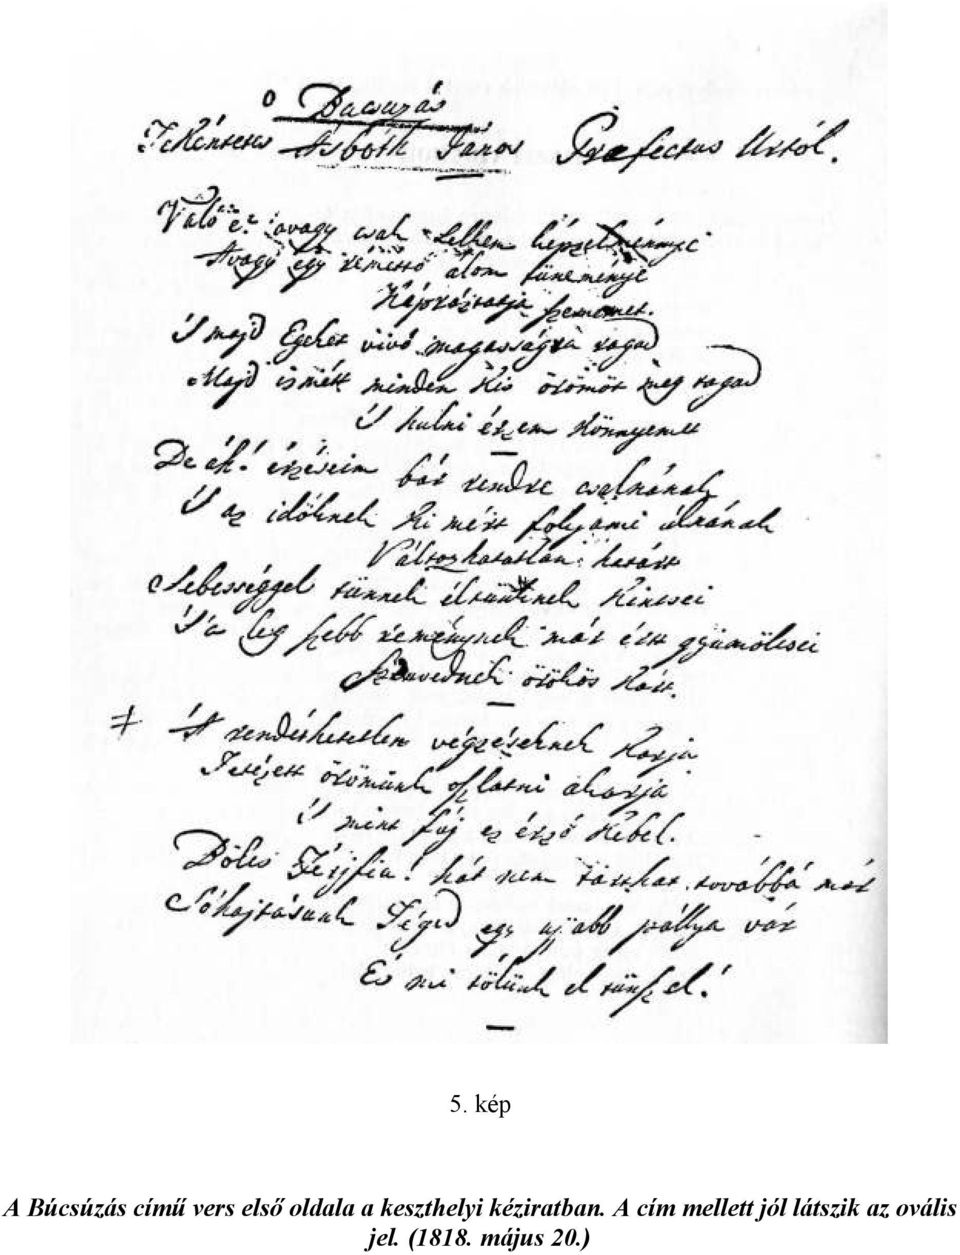 o Bucsuzás
Tekéntetes Asbóth János Præfectus Urtól.
Való é? avagy csak Lelkem képzelménnye
Avagy egy rémittő álom tüneménye
Kápráztatja szememet.
'S majd Egeket vivó magasságra ragad
Majd ismét minden Kis örömöt meg tagad
'S hulni érzem Könnyemet
De áh! érzéseim bár rendre csalnának
'S az időknek Ki mért folyámi álnának
Változhatatlan határt
Sebességgel tünnek éltünknek Kincsei
'S a leg szebb reménynek már ért gyümölcsei
Szenvednek örökös Kárt.
A rendithetetlen végzéseknek Karja
Tetézett örömünk oszlatni akarja
'S mint fúj ez érző Kebel.
Bölcs Férjfiu! hát nem tarthat továbbá már
Sóhajtásunk Téged egy ujabb pállya vár
És mi tőlünk el tünsz el!
5. kép
A Búcsúzás című vers első oldala a keszthelyi kéziratban. A cím mellett jól látszik az ovális
jel. (1818. május 20.)